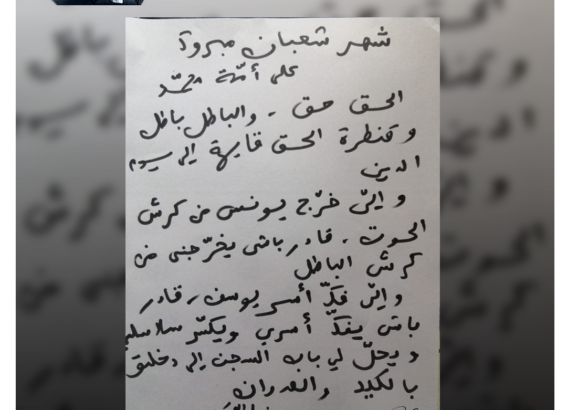 شهر شعبان مبروك
على أمّة محمّد
الحق حق - والباطل باطل
و قنطرة الحق قايمة إلى يوم
الدين
و الّي خرّج يونس من كرش
الحوت، قادر باش يخرّجني من
كرش الباطل
و الّي فكّ أسر يوسف، قادر
باش يفكّ أسري ويكسّر سلاسلي
و يحلّ لي باب السجن إلي دخلتو
بالكيد والعدوان